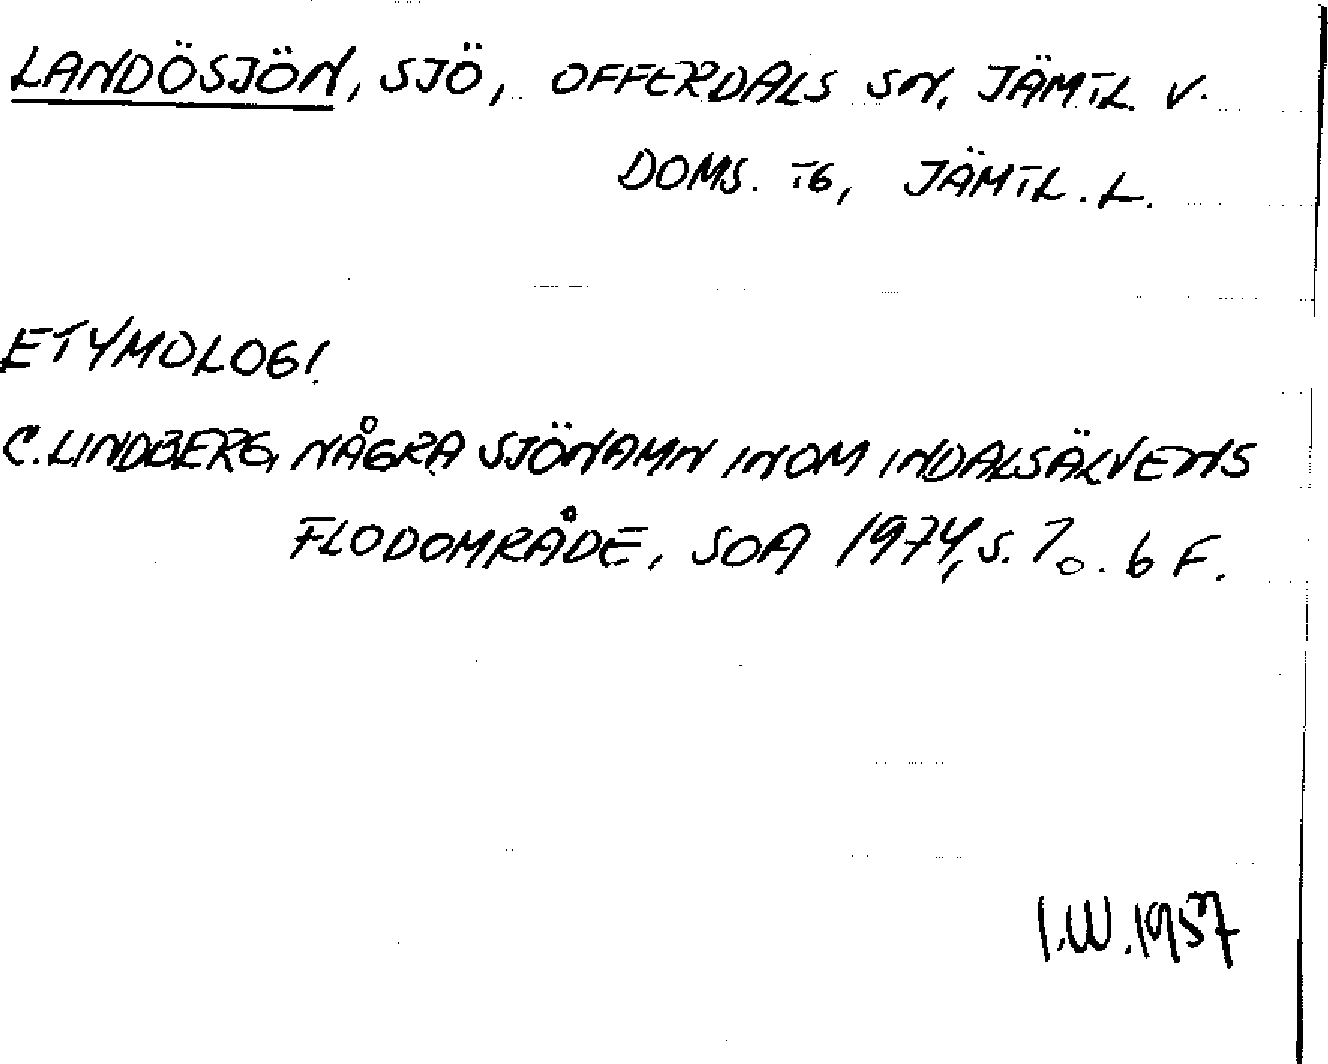 LANDÖSJÖN, SJÖ, OFFERDALS SN, JÄMTL. V.
DOMS. TG, JÄMTL. L.
ETYMOLOGI.
C. LINDBERG, NÅGRA SJÖNAMN INOM INDALSÄLVENS
FLODOMRÅDE, SOÅ 1974, S. 7 o. 6 F.
I.W. 1957